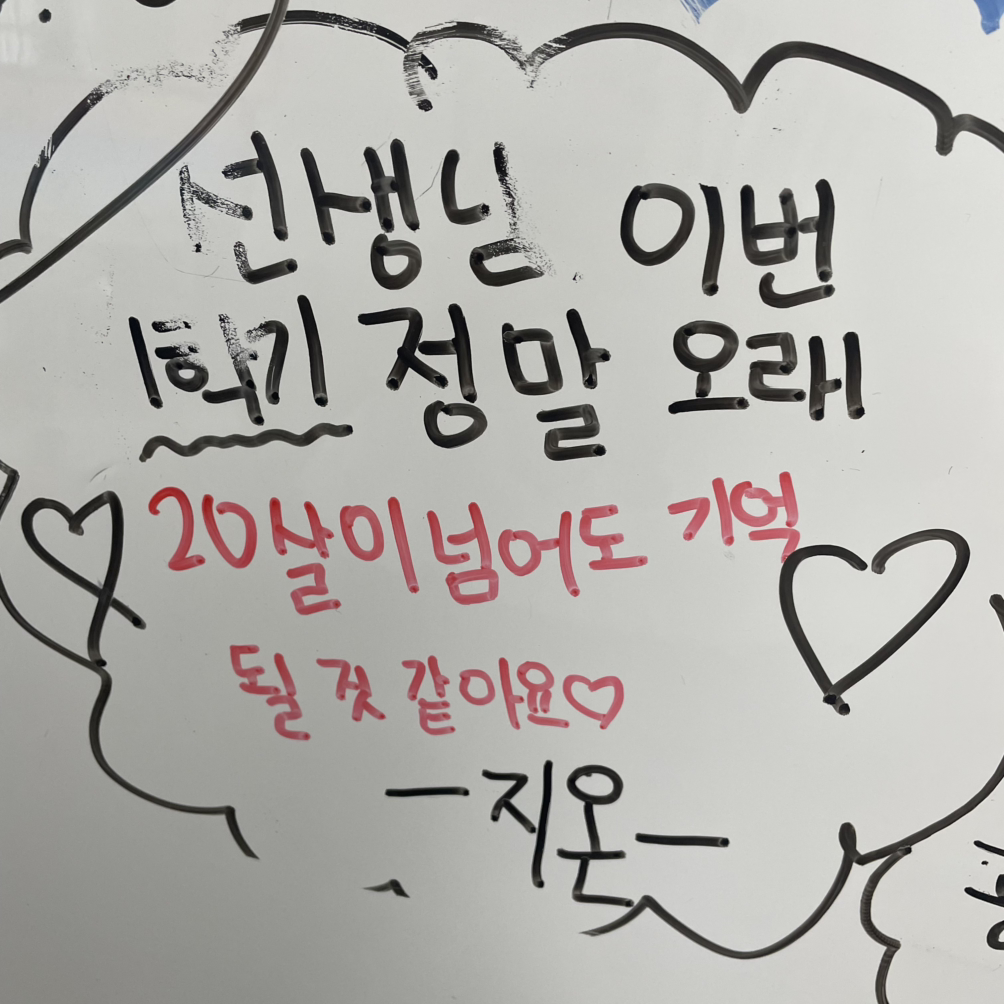 선생님 이번
1학기 정말 오래
20살이 넘어도 기억
될 것 같아요♡
-지온-